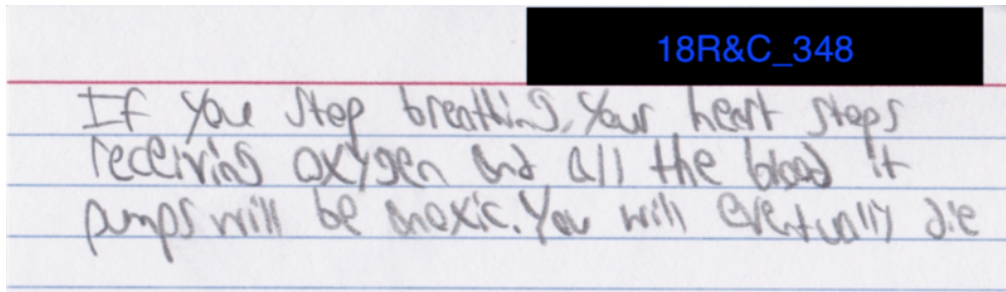 18R&C_348
If you stop breathing, your heart stops
receiving oxygen and all the blood it
pumps will be anoxic. You will eventually die